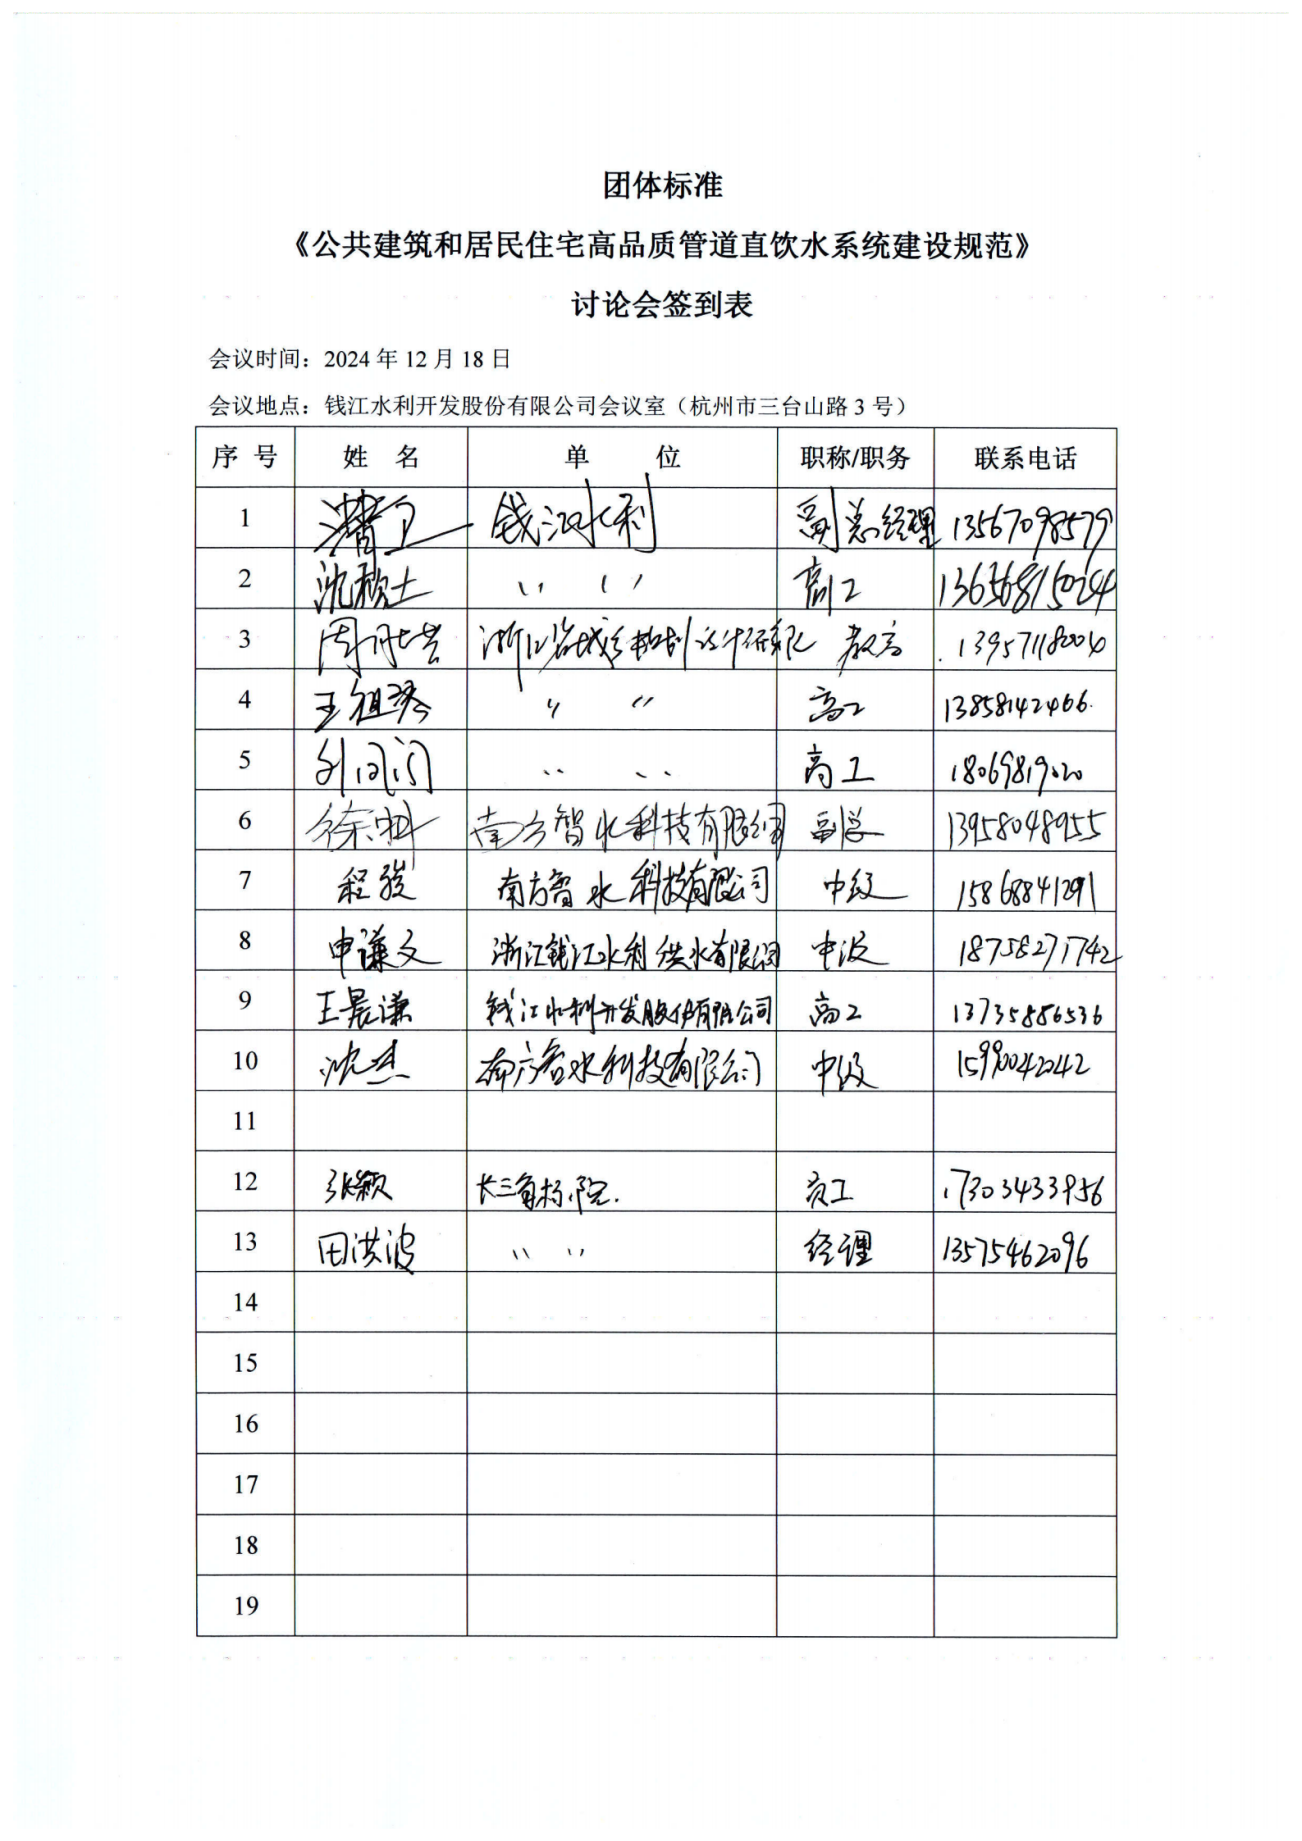 团体标准
《公共建筑和居民住宅高品质管道直饮水系统建设规范》
讨论会签到表
会议时间：2024 年 12 月 18 日
会议地点：钱江水利开发股份有限公司会议室（杭州市三台山路 3 号）
序 号 姓 名 单 位 职称/职务 联系电话
1 钱江水利 副总经理 13567098579
2 沈 〃 〃 高工
3 周 教高 13957118004
4 王祖琴 〃 〃 高工 13858142466
5 〃 〃 高工 18069819020
6 徐 南方智水科技有限公司 副总 13958048955
7 程骏 南方智水科技有限公司 中级 15868841291
8 申谦文 浙江钱江水利供水有限公司 中级 18758271742
9 王晨谦 钱江水利开发股份有限公司 高工 13735886536
10 沈杰 南方智水科技有限公司 中级 15990042042
11
12 张颖 长三角标院. 员工 17303433956
13 田洪波 〃 〃 经理 13575462096
14
15
16
17
18
19